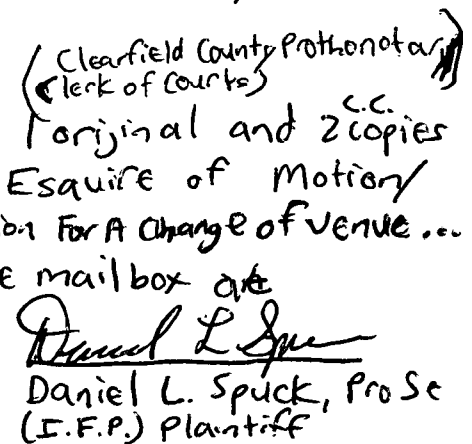 (Clearfield County Prothonotary)
(Clerk of Courts)
1 original and 2 copies
c.c.
Esquire of Motion/
on For A Change of venue...
e mailbox at
Daniel L Spuck
Daniel L. Spuck, Pro Se
(I.F.P.) Plaintiff